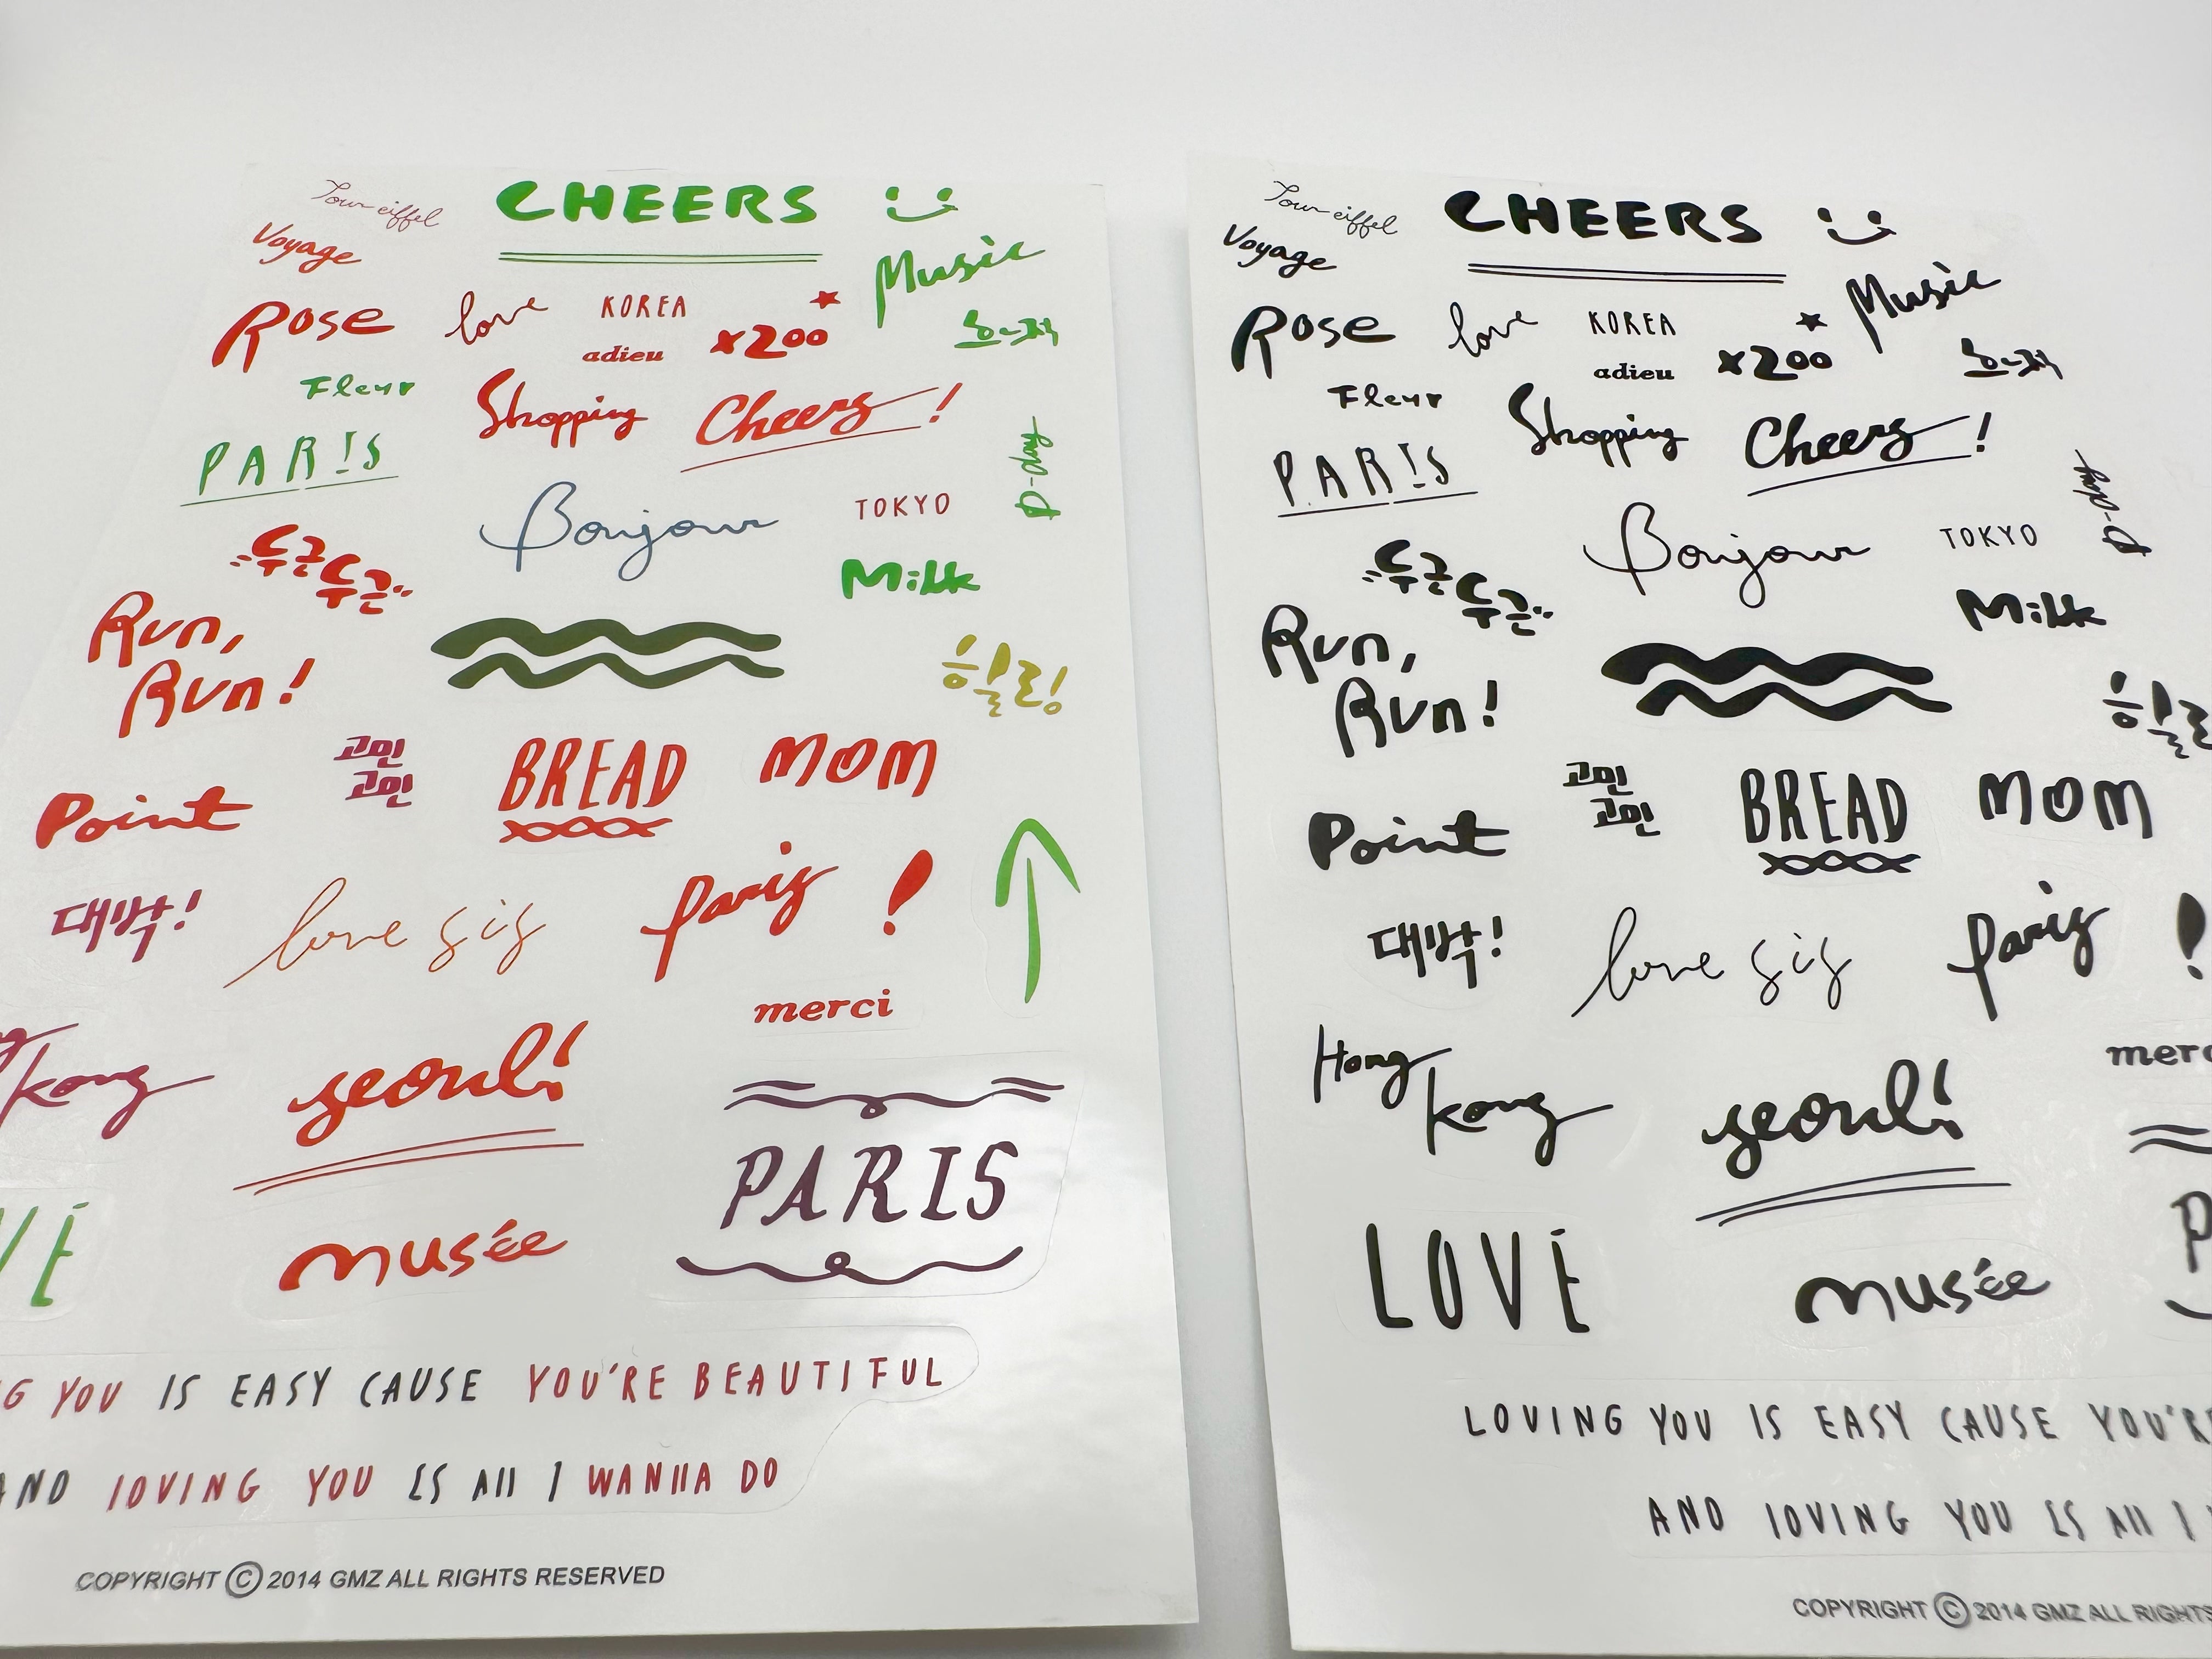 Tour eiffel
CHEERS
Voyage
Music
Rose
love
KOREA
x200
adieu
혼자
Fleur
Shopping
Cheers!
PARIS
D-day
Bonjour
TOKYO
두근두근
Milk
Run,
Run!
힐링
고민
고민
BREAD
MOM
Point
대박!
love sis
Paris
!
merci
kong
seoul!
PARIS
VE
musée
G YOU IS EASY CAUSE YOU'RE BEAUTIFUL
AND lOVING YOU IS All I WANNA DO
COPYRIGHT © 2014 GMZ ALL RIGHTS RESERVED
Tour eiffel
CHEERS
Voyage
Music
Rose
love
KOREA
x200
adieu
혼자
Fleur
Shopping
Cheers!
PARIS
D-day
Bonjour
TOKYO
두근두근
Milk
Run,
Run!
힐
고민
고민
BREAD
MOM
Point
대박!
love sis
Paris
!
merc
Hong
kong
seoul!
P
LOVE
musée
LOVING YOU IS EASY CAUSE YOU'R
AND lOVING YOU IS All I
COPYRIGHT © 2014 GMZ ALL RIGHTS